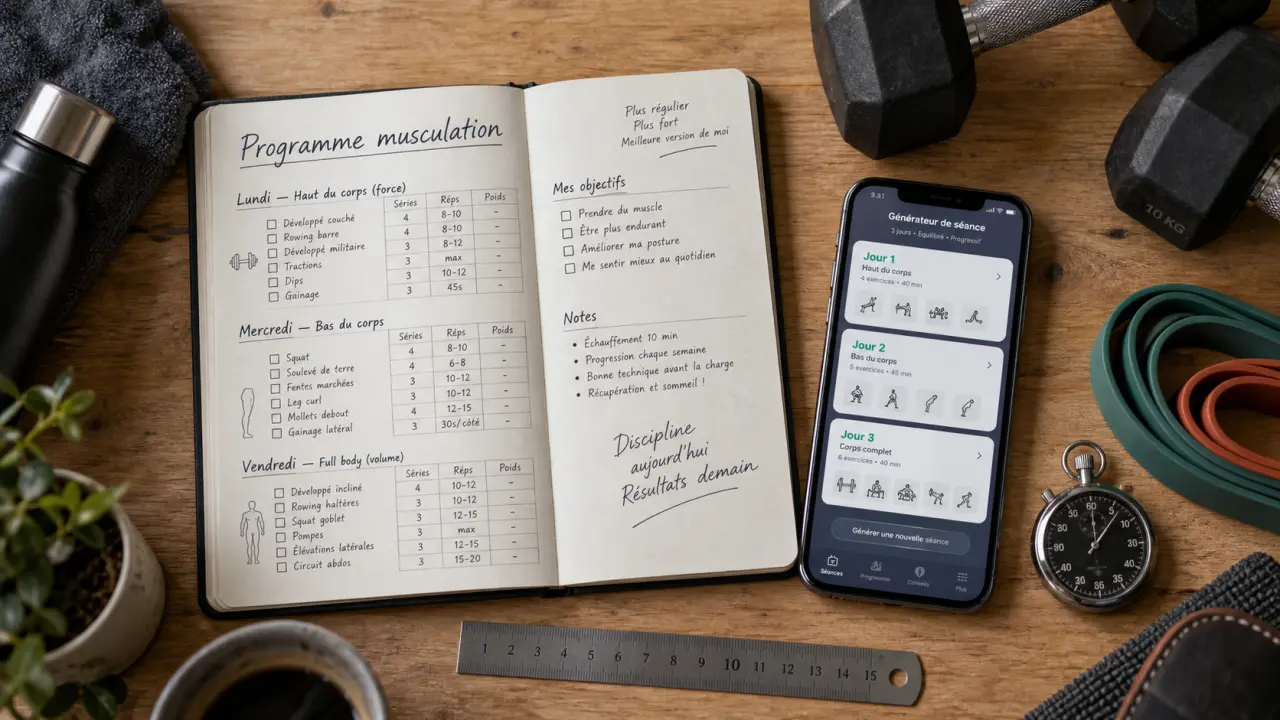 Programme musculation
Lundi — Haut du corps (force)
Séries Réps Poids
Développé couché 4 8-10 -
Rowing barre 4 8-10 -
Développé militaire 3 8-12 -
Tractions 3 max -
Dips 3 10-12 -
Gainage 3 45s -
Mercredi — Bas du corps
Séries Réps Poids
Squat 4 8-10 -
Soulevé de terre 4 6-8 -
Fentes marchées 3 10-12 -
Leg curl 3 10-12 -
Mollets debout 4 12-15 -
Gainage latéral 3 30s/côté -
Vendredi — Full body (volume)
Séries Réps Poids
Développé incliné 4 10-12 -
Rowing haltères 3 10-12 -
Squat goblet 3 12-15 -
Pompes 3 max -
Élévations latérales 3 12-15 -
Circuit abdos 3 15-20 -
Plus régulier
Plus fort
Meilleure version de moi
Mes objectifs
Prendre du muscle
Être plus endurant
Améliorer ma posture
Me sentir mieux au quotidien
Notes
• Échauffement 10 min
• Progression chaque semaine
• Bonne technique avant la charge
• Récupération et sommeil !
Discipline
aujourd'hui
Résultats demain
Générateur de séance
3 jours • Équilibré • Progressif
Jour 1
Haut du corps
4 exercices • 40 min
Jour 2
Bas du corps
5 exercices • 45 min
Jour 3
Corps complet
6 exercices • 40 min
Générer une nouvelle séance
Séances Progression Conseils Plus
10 KG
1 2 3 4 5 6 7 8 9 10 11 12 13 14 15
60 5